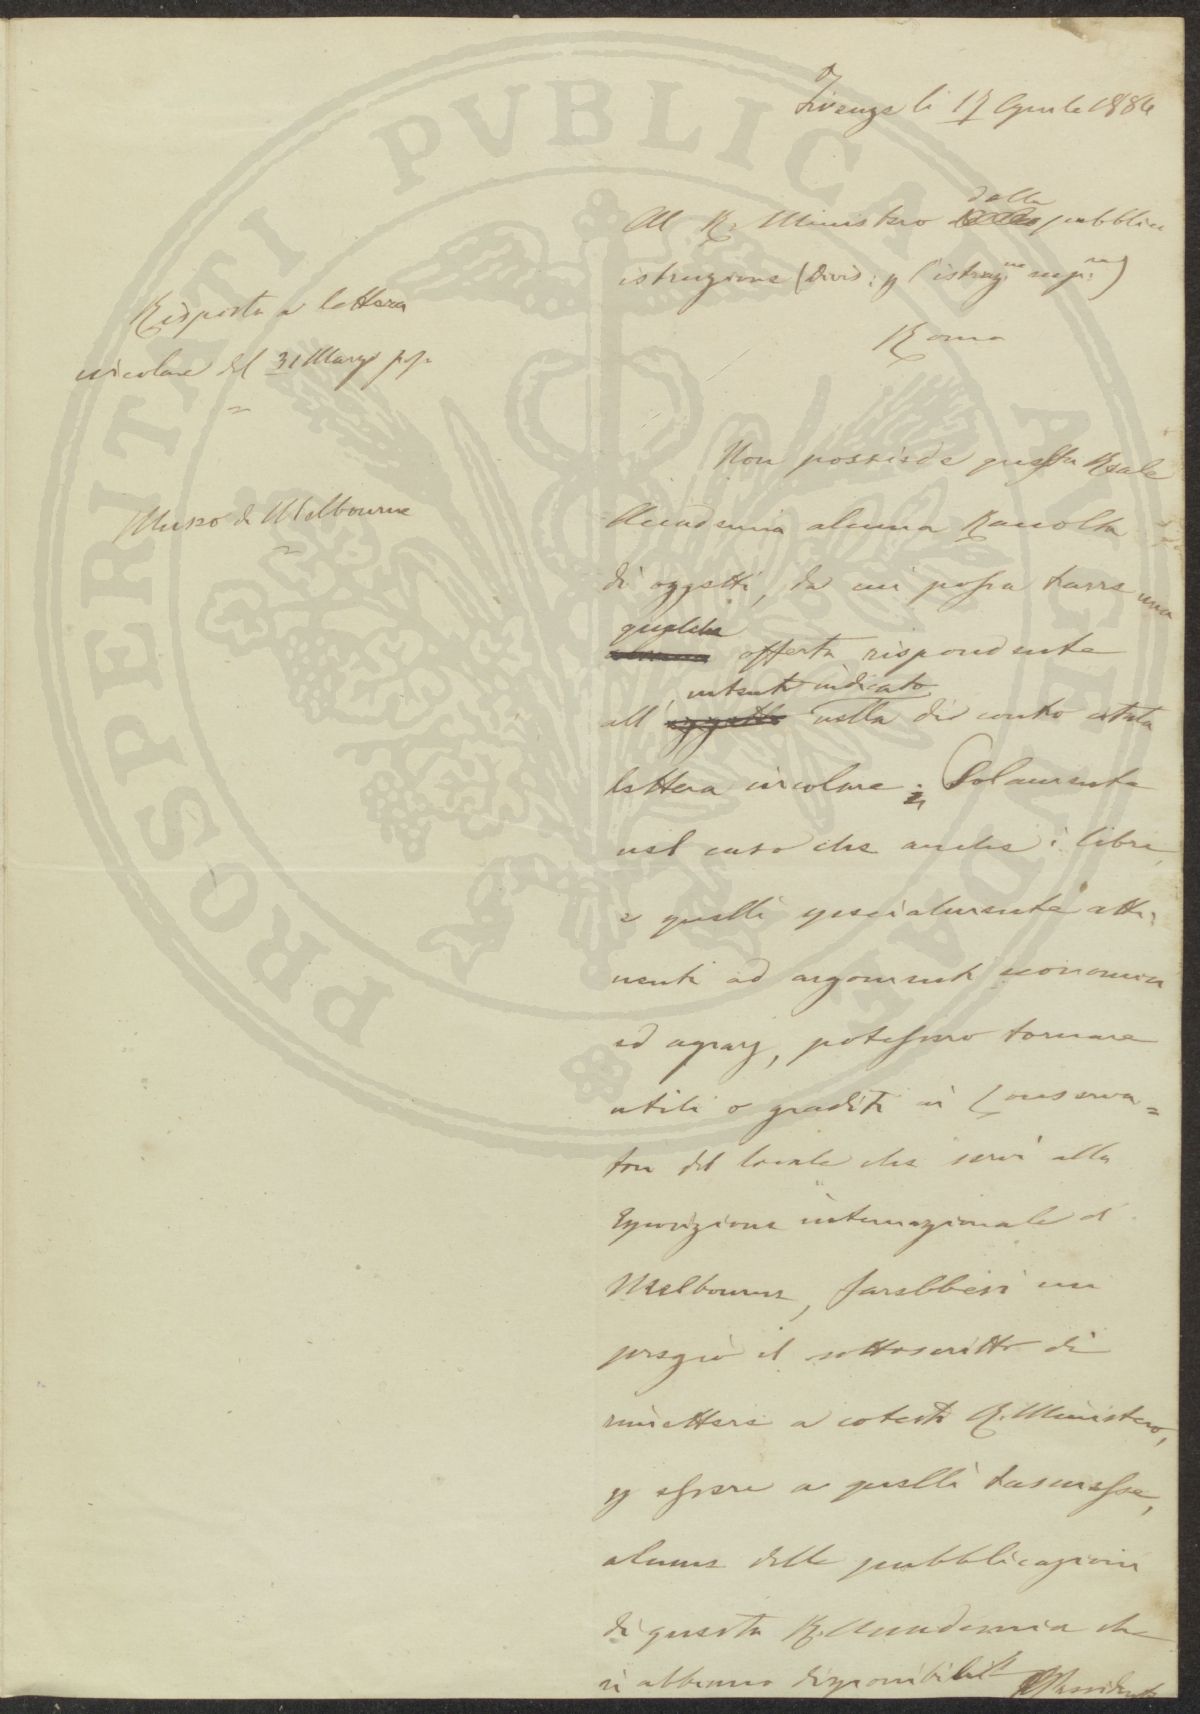 Firenze li 17 Aprile 1884
Al R. Ministero della pubblica
istruzione (Divis: p l'istruz.ne sup.re)
Roma
Risposta a lettera
circolare del 31 Marzo p.p.
Museo di Melbourne
Non possiede questa Reale
Accademia alcuna Raccolta
di oggetti, da cui possa trarre una
qualche offerta rispondente
all' intento indicato nella di contro citata
lettera circolare; Solamente
nel caso che anche i libri,
e quelli specialmente atti:
nenti ad argomenti economici
ed agrarj, potessero tornare
utili o graditi ai Conserva=
tori del locale che servì alla
Esposizione internazionale di
Melbourne, farebbesi un
pregio il sottoscritto di
rimettere a cotesto R. Ministero,
p essere a quelli trasmesse,
alcune delle pubblicazioni
di questa R. Accademia che
si abbiano disponibili Il Presidente
PROSPERITATI PVBLICAE AVGENDAE